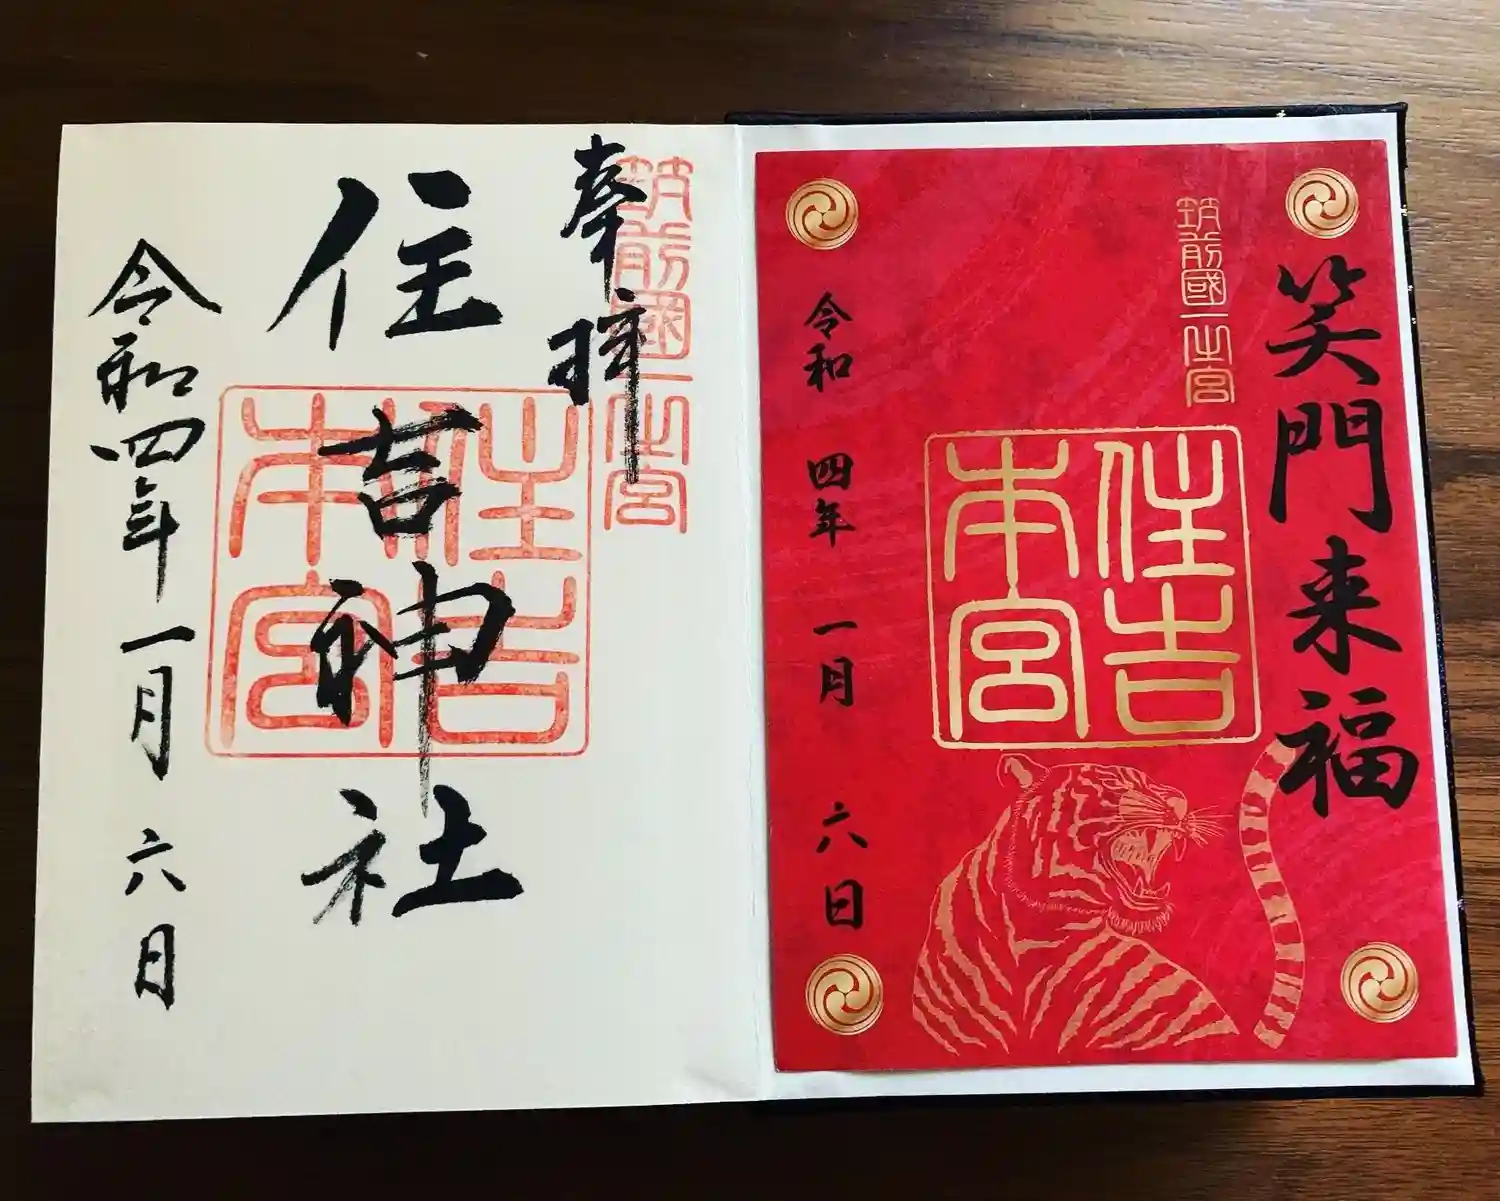 笑門来福
筑前國一之宮
住吉
本宮
令和四年一月六日
奉拝
筑前國一之宮
住吉神社
住吉
本宮
令和四年一月六日